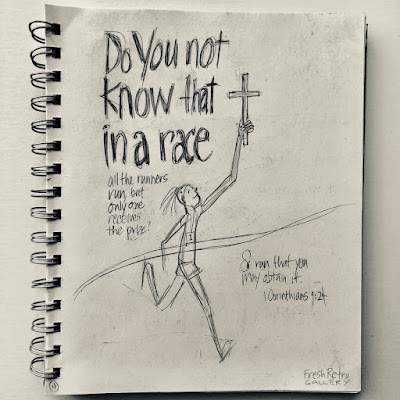 Do You not
know that
in a race
all the runners
run, but
only one
receives
the prize?
So run that you
may obtain it.
1 Corinthians 9:24
Fresh Retro
GALLERY